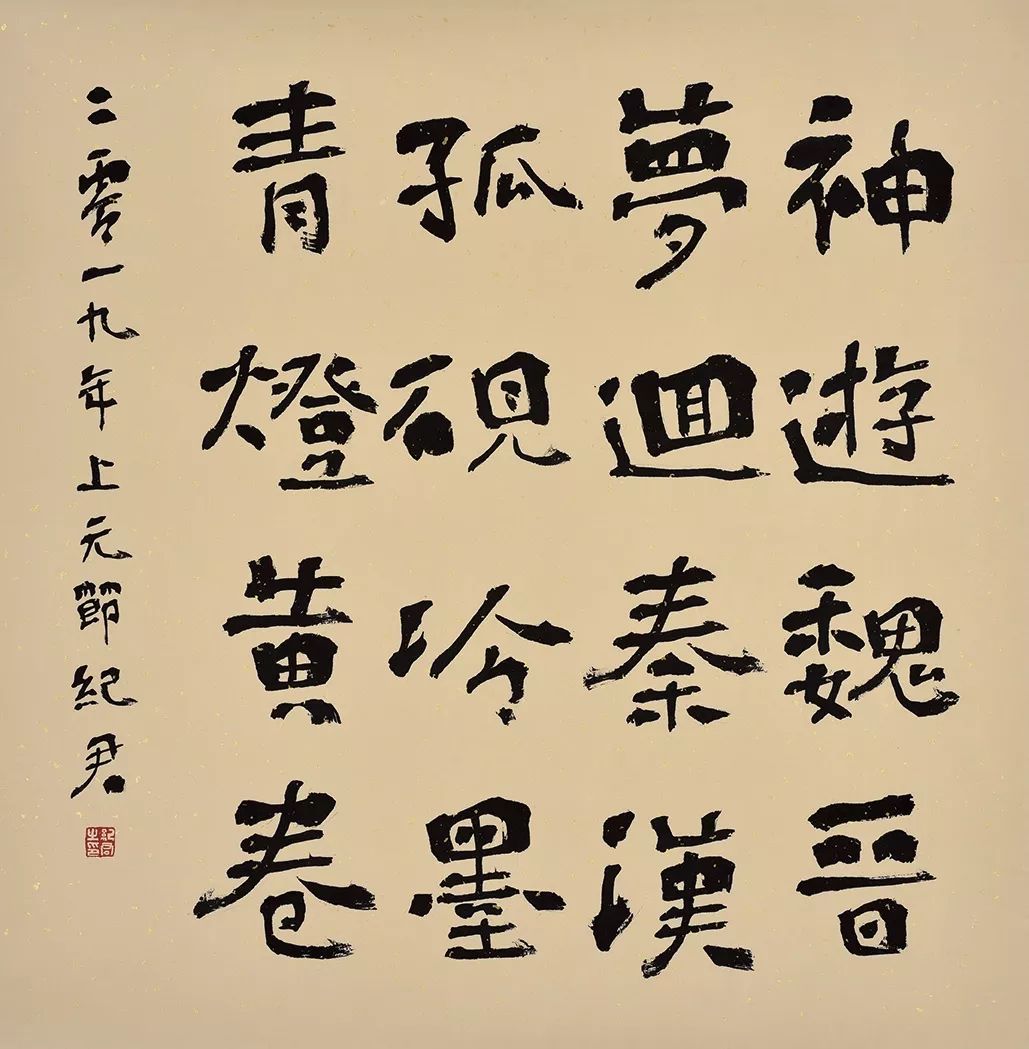 神遊魏晉
夢迴秦漢
孤硯冷墨
青燈黃卷
二零一九年上元節紀君
紀君之印